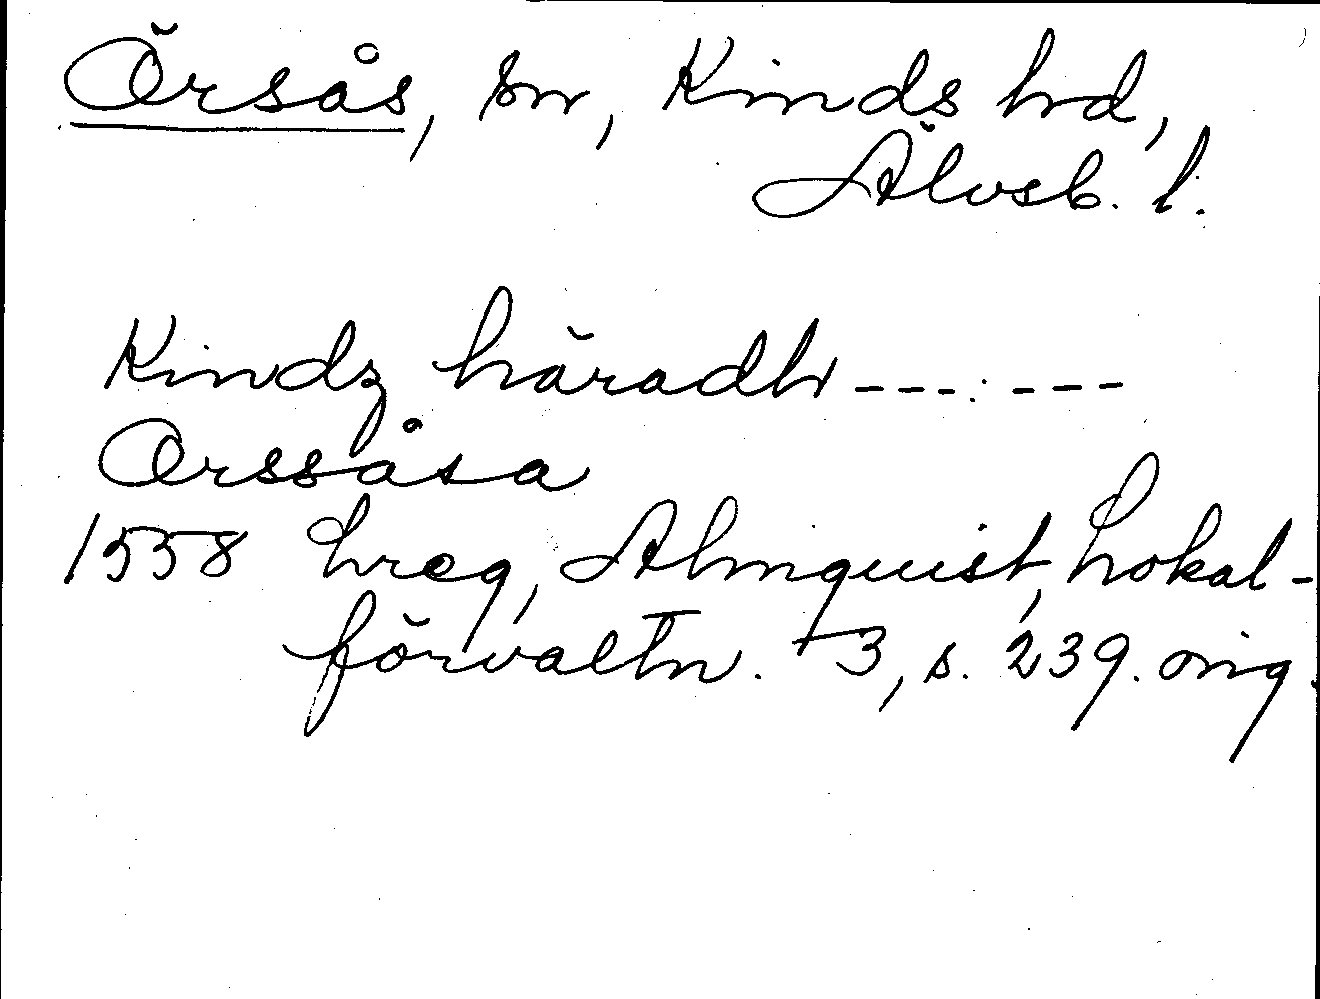 Örsås, sn, Kinds hrd,
Älvsb. l.
Kindz häradh --- : ---
Orssåsa
1558 hreg, Almquist, Lokal-
förvaltn. 3, s. 239. orig.